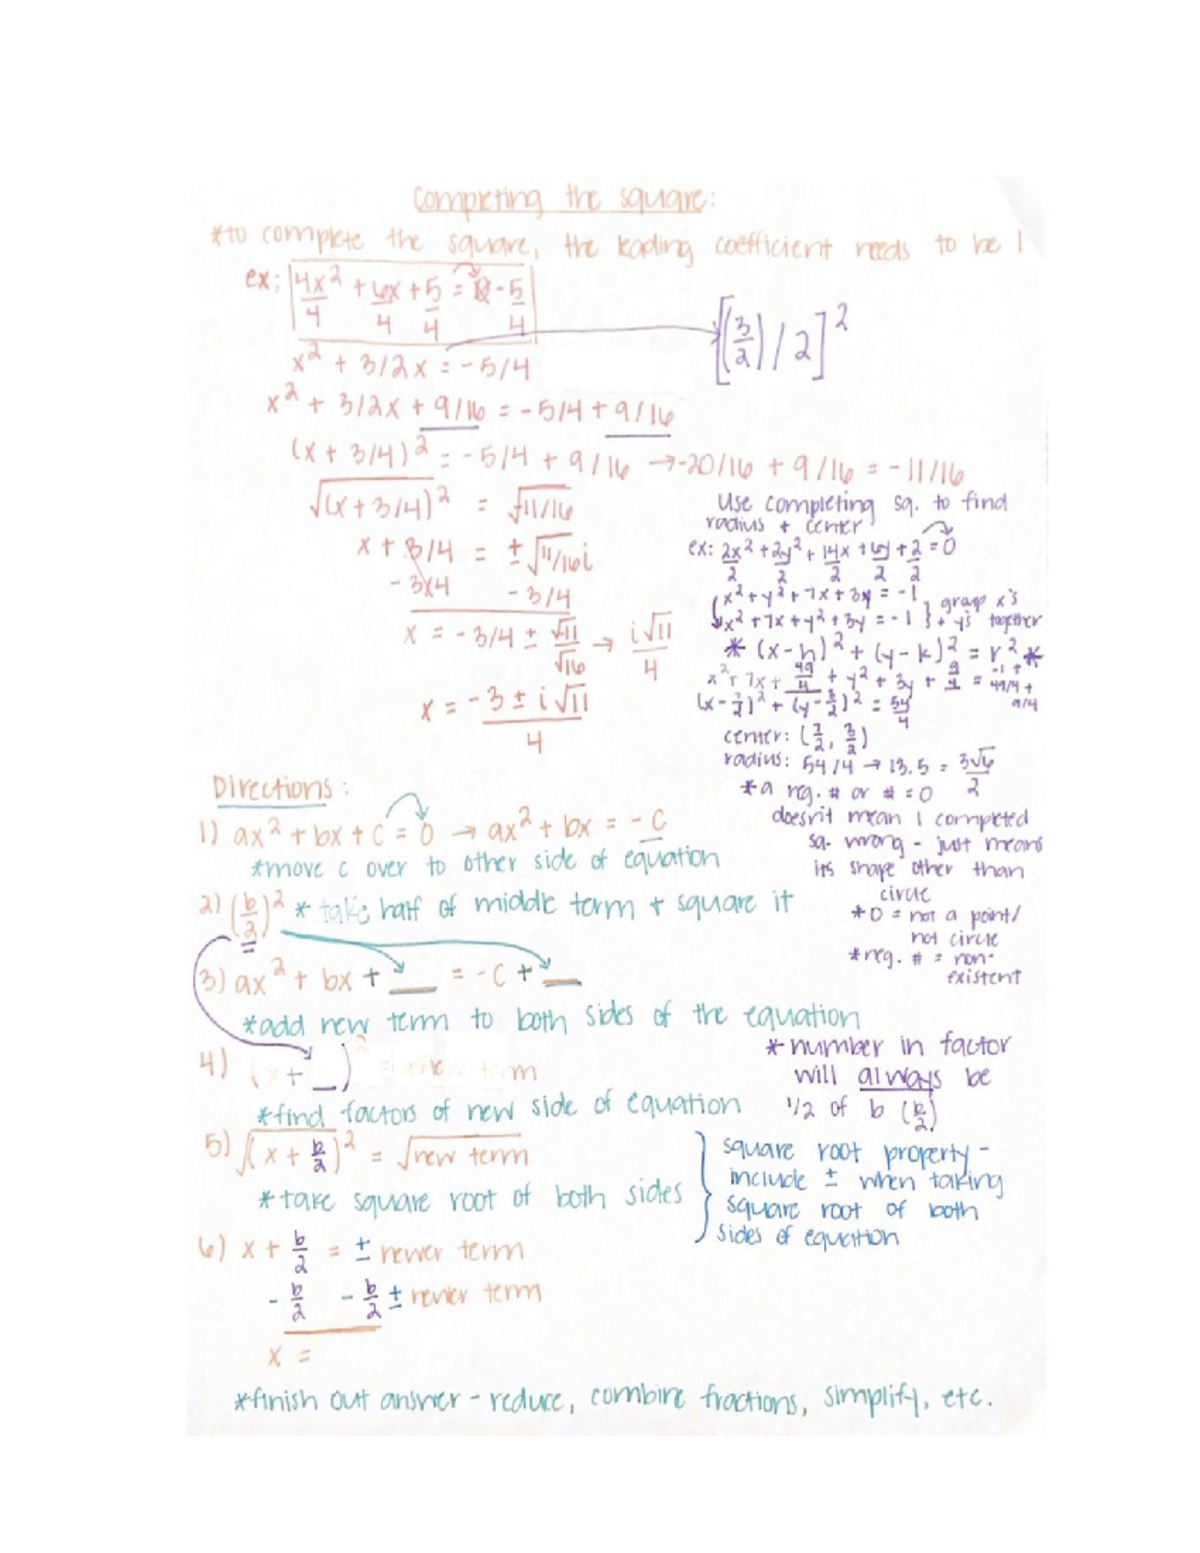 Completing the square:
*to complete the square, the leading coefficient needs to be 1
ex: 4x²/4 + 6x/4 + 5/4 = 0 - 5/4
[(3/2)/2]²
x² + 3/2x = -5/4
x² + 3/2x + 9/16 = -5/4 + 9/16
(x + 3/4)² = -5/4 + 9/16 → -20/16 + 9/16 = -11/16
√(x + 3/4)² = √-11/16
x + 3/4 = ± √11/16 i
- 3/4 - 3/4
x = -3/4 ± √11/√16 → i√11/4
x = -3 ± i√11 / 4
Use completing sq. to find
radius + center
ex: 2x²/2 + 2y²/2 + 14x/2 + 6y/2 + 2/2 = 0
x² + y² + 7x + 3y = -1
x² + 7x + y² + 3y = -1 } group x's + y's together
* (x-h)² + (y-k)² = r² *
x² + 7x + 49/4 + y² + 3y + 9/4 = -1 + 49/4 + 9/4
(x - 7/2)² + (y - 3/2)² = 54/4
center: (7/2, 3/2)
radius: 54/4 → 13.5 = 3√6/2
*a neg. # or # = 0
doesn't mean I completed
sq. wrong - just means
its shape other than
circle
*0 = not a point/
not circle
*neg. # = non-
existent
Directions:
1) ax² + bx + c = 0 → ax² + bx = -c
*move c over to other side of equation
2) (b/2)² * take half of middle term + square it
3) ax² + bx + __ = -c + __
*add new term to both sides of the equation
4) (x + _)² = new term
*find factors of new side of equation
*number in factor
will always be
1/2 of b (b/2)
5) √(x + b/2)² = √new term
*take square root of both sides
square root property -
include ± when taking
square root of both
sides of equation
6) x + b/2 = ± newer term
- b/2 - b/2 ± newer term
x =
*finish out answer - reduce, combine fractions, simplify, etc.